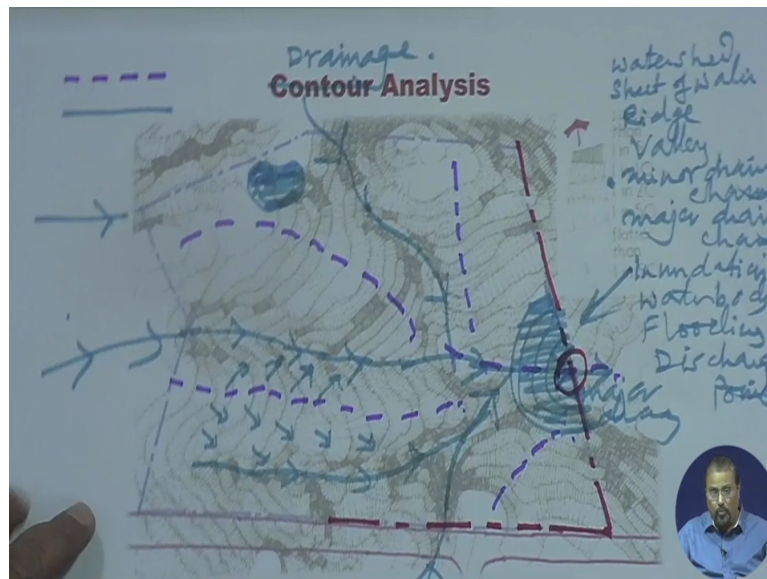 Drainage.
Contour Analysis
Watershed
Sheet of
Ridge
Valley
minor drain
major drain
Inundation
Waterbody
Flooding
Discharge
major